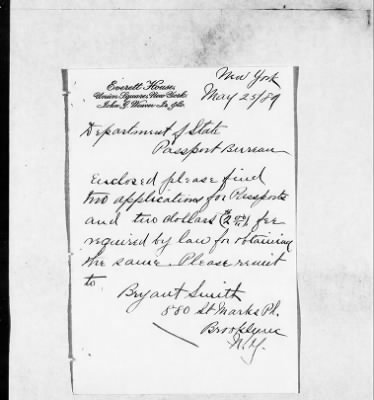 New York
Everett House,
Union Square, New York
John G. Weaver Jr. &co.
May 25/89
Department of State
Passport Bureau
Enclosed please find
two applications for Passports
and two dollars fee
required by law for obtaining
the same. Please remit
to
Bryant Smith
880 St Marks Pl.
Brooklyn
N.Y.